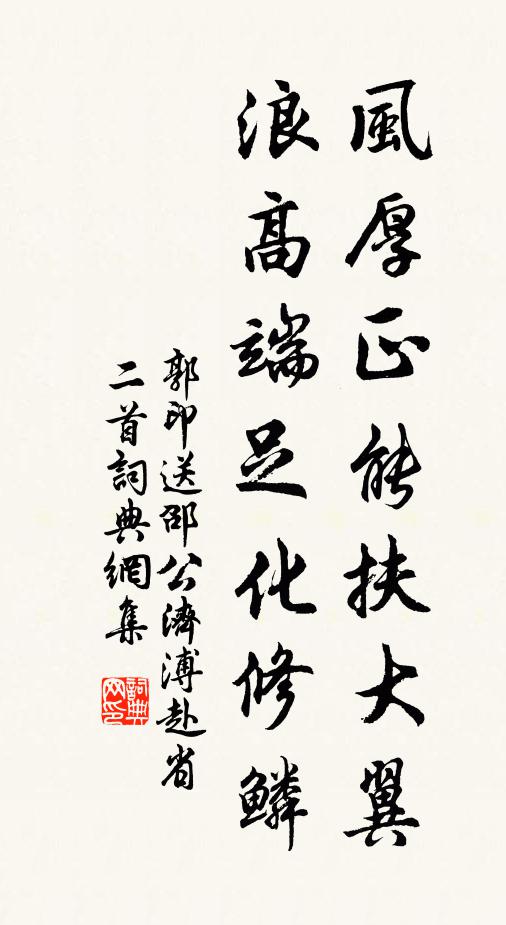 風厚正能扶大翼
浪高端足化修鱗
郭印送邵公濟溥赴省
二首詞典網集
詞典
网印